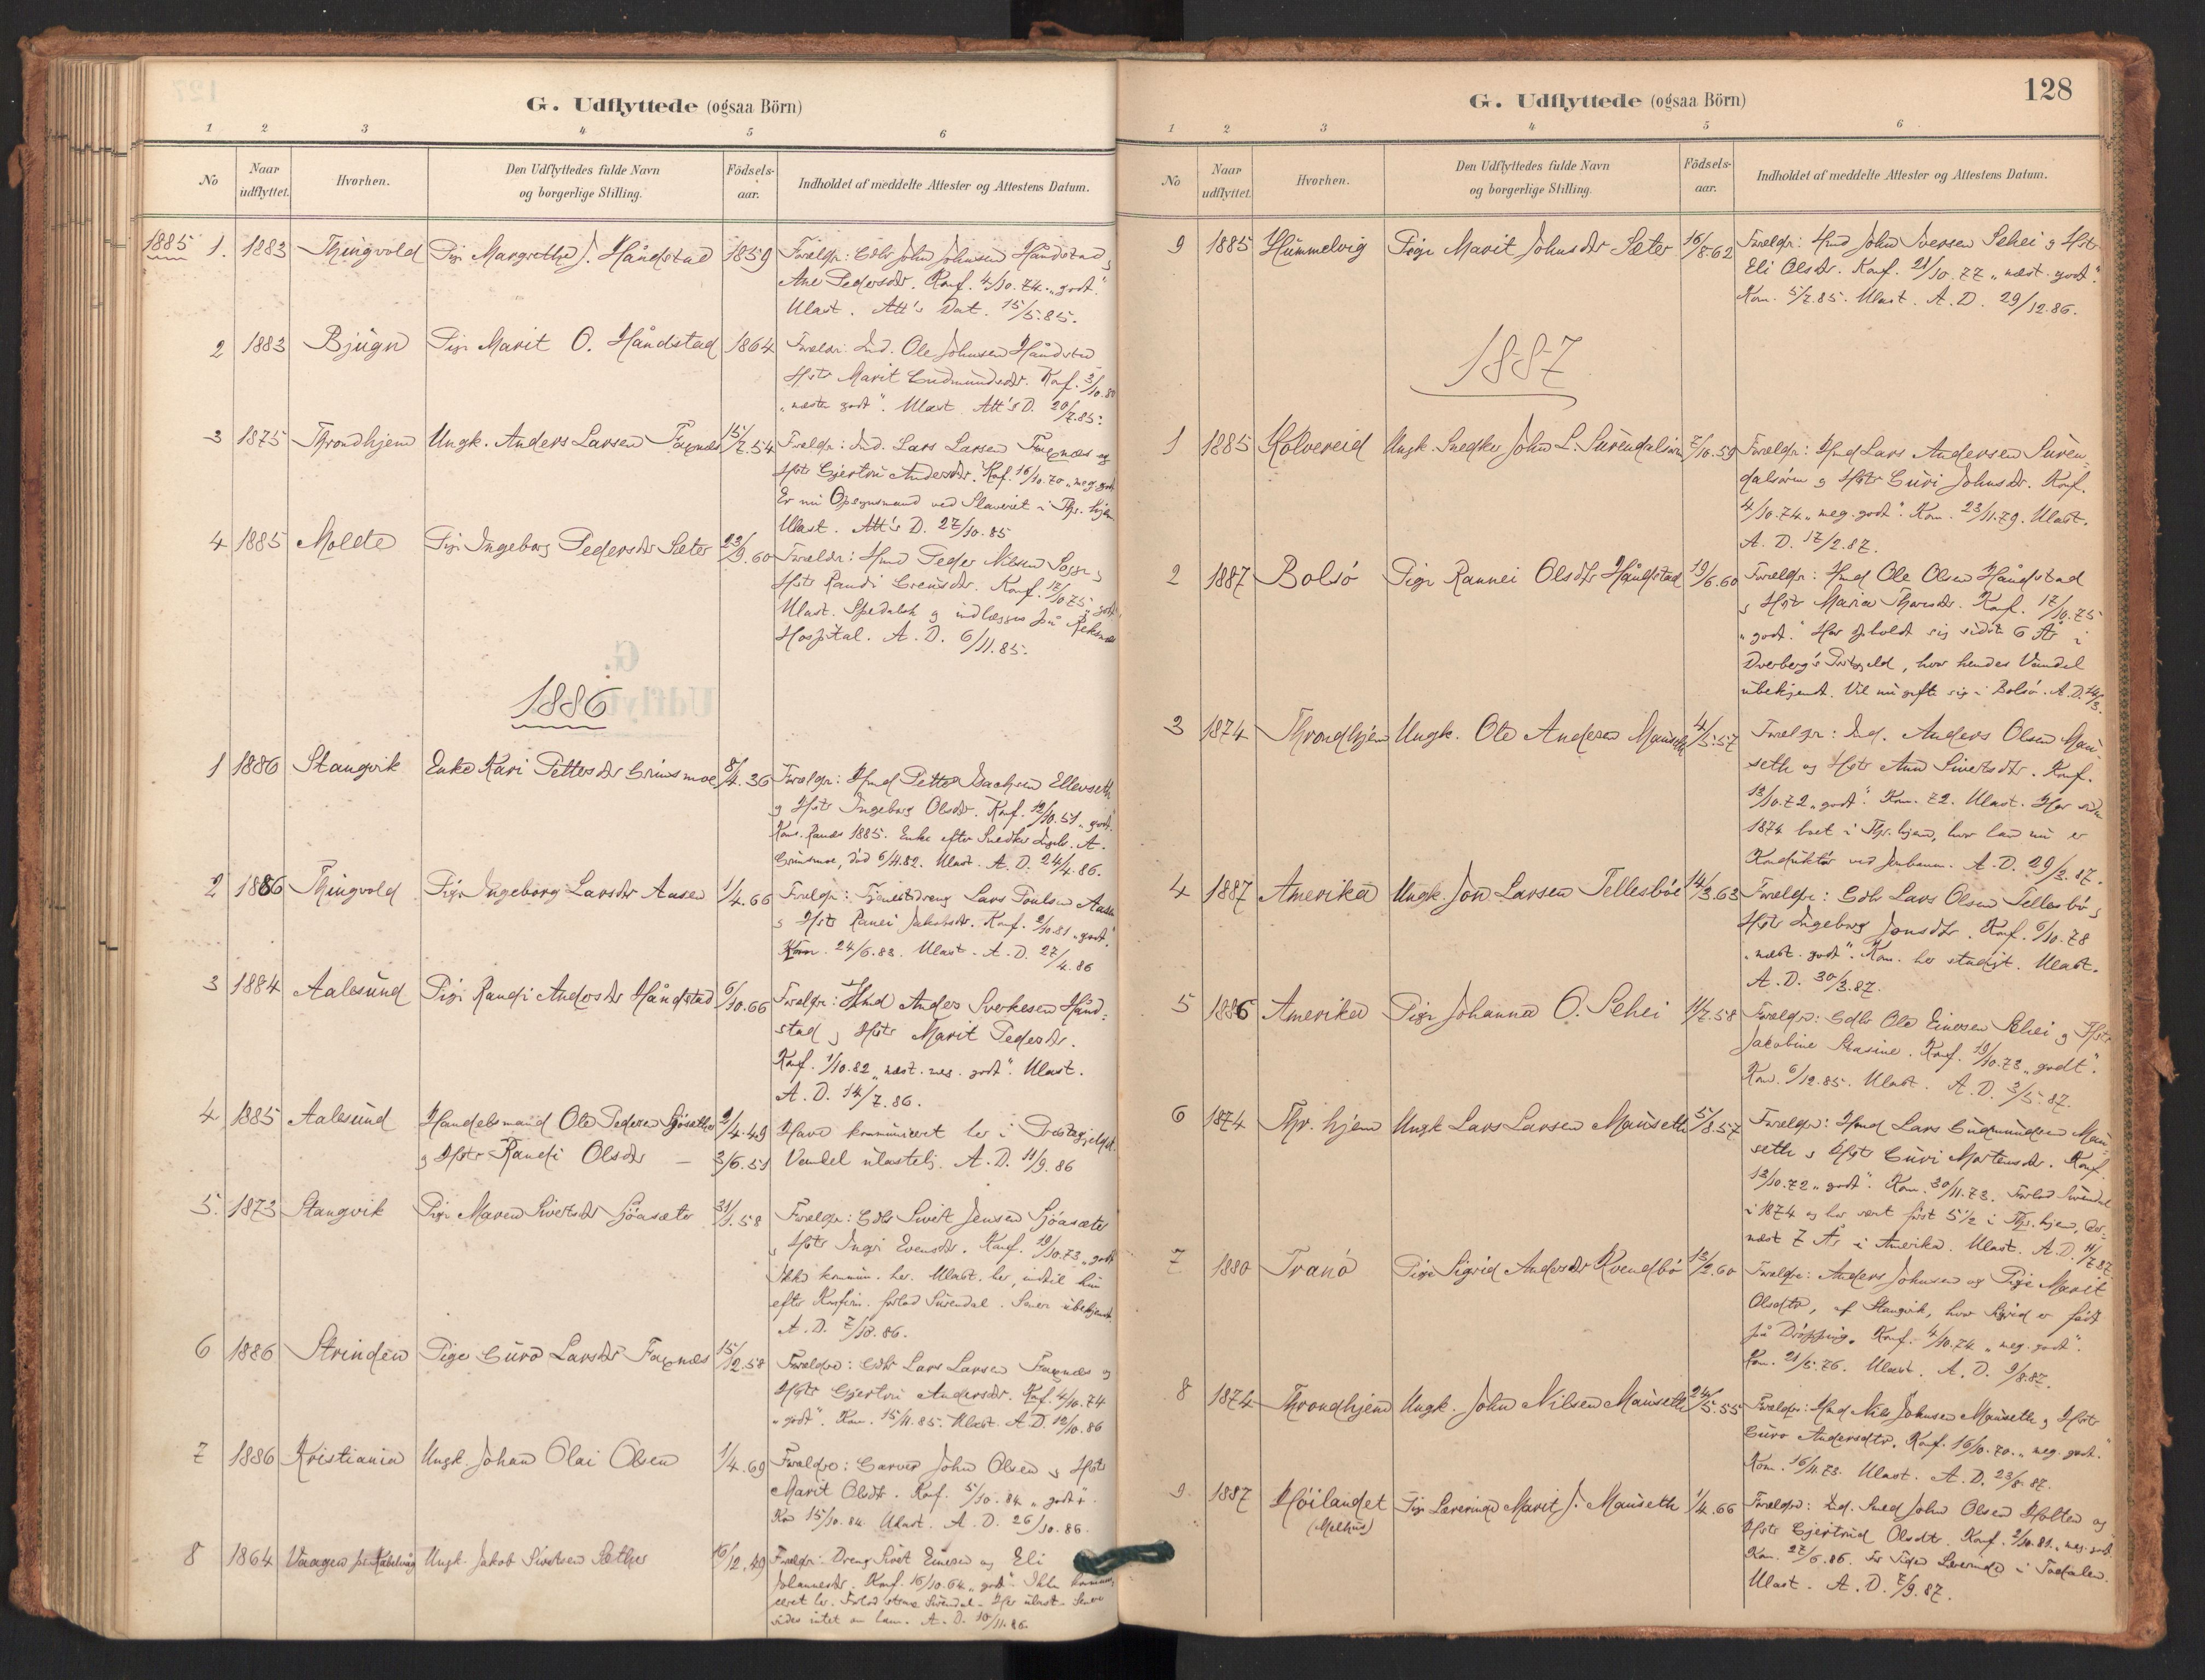 G. Udflyttede (ogsaa Börn)
1 2 3 4 5 6
No
Naar udflyttet.
Hvorhen.
Den Udflyttedes fulde Navn og borgerlige Stilling.
Födsels-aar.
Indholdet af meddelte Attester og Attestens Datum.
1885 1. 1883 Thingvold Pige Margrethe J. Håndstad 1859 Forældr: Gdbr John Johnsen Håndstad
Ane Pedersdtr. Konf. 4/10.74. "godt."
Ulast. Att's Dat. 15/5.85.
2 1883 Bjugn Pige Marit O. Håndstad 1864 Forældr. Ind. Ole Johnsen Håndstad
Hstr Marit Gudmundsdtr. Konf. 3/10.80
"næsten godt". Ulast. Att's D. 20/7.85.
3 1875 Throndhjem Ungk. Anders Larsen Faxnæs 15/7.54 Forældr: Ind. Lars Larsen Faxnæs og
Hstr Gjertru Andersdtr. Konf. 16/10.70 "meg. godt
Er nu Opsynsmand ved Slaveriet i Thr.hjem.
Ulast. Att's D. 27/10.85
4 1885 Molde Pige Ingeborg Pedersdtr Sæter 23/9.60 Forældr: Hmd Peder Nilsen
Hstr Randi Konf. 17/10.75 "godt"
Ulast. Spedalsk og indlægges på Reknæs
Hospital. A. D. 6/11.85.
1886
1 1886 Stangvik Enke Kari Pettersdtr Grimsmoe 8/4.36 Forældr: Hmd Petter Isachsen Ellevseth
og Hstr Ingeborg Olsdtr. Konf. 12/10.51 "godt.
1885. Enke efter Snedker A.
Grimsmoe, död 6/4.82. Ulast. A. D. 24/4.86.
2 1886 Thingvold Pige Ingeborg Larsdtr Aasen 1/4.66 Forældr: Tjenestedreng Lars Poulsen Aasen
og Hstr Ranei Jakobsdtr. Konf. 2/10.81 "godt."
Kom. 24/6.83. Ulast. A. D. 27/4.86
3 1884 Aalesund Pige Randi Andersdtr Håndstad 6/10.66 Forældr: Hmd Anders Sverkesen Hånd-
stad og Hstr Marit Pedersdtr.
Konf. 1/10.82 "næst. meg. godt". Ulast.
A. D. 14/7.86.
4 1885 Aalesund Handelsmand Ole Pedersen Sjösæther 2/4.49 Have kommuniceret her i Præstegjeldet.
og Hstr Randi Olsdtr — 3/6.51 Vandel ulastelig. A. D. 11/9.86
5. 1873 Stangvik Pige Maren Sivertsdtr Sjöasæter 31/1.58 Forældr: Gdbr Sivert Jensen Sjöasæter
og Hstr Ingri Evensdtr. Konf. 19/10.73 "godt
Ikke kommun. her. Ulast. her, indtil hun
efter Konfirm. forlod Surendal. Senere ubekjendt.
A. D. 7/10.86.
6 1886 Strinden Pige Guro Larsdtr Faxnæs 15/12.58 Forældre: Gdbr Lars Larsen Faxnæs og
Hstr Gjertru Andersdtr. Konf. 4/10.74
"godt". Kom. 15/11.85. Ulast. A. D. 12/10.86
7 1886 Kristiania Ungk. Johan Olai Olsen 1/4.69 Forældre: Garver John Olsen og Hstr
Marit Olsdtr. Konf. 5/10.84 "godt".
Kom 15/10.84. Ulast. A. D. 26/10.86.
8 1864 Vaagen pr. Kabelvåg Ungk. Jakob Sivertsen Sæther 16/12.49 Forældr: Dreng Sivert Einersen og Eli
Johannesdtr. Konf. 16/10.64 "godt". Ikke kommuni-
ceret her. Forlod strax Surendal. Her ulast. Senere
vides intet om ham. A. D. 10/11.86.
128
G. Udflyttede (ogsaa Börn)
1 2 3 4 5 6
No
Naar udflyttet.
Hvorhen.
Den Udflyttedes fulde Navn og borgerlige Stilling.
Födsels-aar.
Indholdet af meddelte Attester og Attestens Datum.
9 1885 Hummelvig Pige Marit Johnsdtr Sæter 16/8.62 Forældr: Hmd John Iversen Schei og Hstr
Eli Olsdtr. Konf. 21/10.77 "næst. godt".
Kom. 5/7.85. Ulast. A. D. 29/12.86.
1887
1 1885 Kolvereid Ungk. Snedker John L. Surendalsören 7/10.59 Forældr: Hmd Lars Andersen Suren-
dalsören og Hstr Guri Johnsdtr. Konf.
4/10.74 "meg. godt". Kom. 23/11.79. Ulast.
A. D. 17/2.87.
2 1887 Bolsö Pige Rannei Olsdtr Håndstad 19/6.60 Forældr: Hmd Ole Olsen Håndstad
og Hstr Maria Thoresdtr. Konf. 17/10.75
"godt." Har opholdt sig sidst 6 År i
Dverberg's Prstgjeld, hvor hendes Vandel
ubekjendt. Vil nu gifte sig i Bolsö. A.D. 24/3.
3 1874 Throndhjem Ungk. Ole Andersen Mauseth 4/5.57 Forældr: Ind. Anders Olsen Mau-
seth og Hstr Ann Sivertsdtr. Konf.
13/10.72 "godt". Kom. 72. Ulast. Har siden
1874 boet i Thr.hjem, hvor han nu er
Konduktör ved Jernbanen. A. D. 29/3.87.
4 1887 Amerika Ungk. Jon Larsen Tellesböe 14/3.63 Forældr: Gdbr Lars Olsen Tellesbö og
Hstr Ingeborg Jonsdtr. Konf. 6/10.78
"næst. godt". Kom. her stadigt. Ulast.
A. D. 30/3.87.
5 1886 Amerika Pige Johanna O. Schei 11/7.58 Forældre: Gdbr Ole Einersen Schei og Hstr
Jakobine Stasine. Konf. 19/10.73 "godt".
Kom. 6/12.85. Ulast. A. D. 3/5.87.
6 1874 Thr.hjem Ungk Lars Larsen Mauseth 5/8.57 Forældre: Hmd Lars Gudmundsen Mau-
seth og Hstr Guri Mortensdtr. Konf.
13/10.72 "godt". Kom. 30/11.73. Forlod Surendal
i 1874 og har været först 5½ i Thr.hjem, der-
næst 7 År i Amerika. Ulast. A. D. 11/7.87.
7 1880 Tranö Pige Sigrid Andersdtr Kvendbö 13/2.60 Forældre: Anders Johnsen og Pige Marit
Olsdtr, af Stangvik, hvor Sigrid er född
på Dröpping. Konf. 4/10.74 "meg. godt".
Kom. 21/5.76. Ulast. A. D. 9/8.87.
8 1874 Throndhjem Ungk. John Nilsen Mauseth 24/5.55 Forældre: Hmd Nils Johnsen Mauseth og Hstr
Guro Andersdtr. Konf. 16/10.70. "meg. godt."
Kom. 16/11.73. Ulast. A. D. 23/8.87.
9. 1887 Höilandet Pige Lærerinde Marit J. Mauseth 1/4.66 Forældre: Ind. Smed John Olsen Holten og
(Melhus) Hstr Gjertrud Olsdtr. Konf. 2/10.81. "meg. godt.
Kom. 27/6.86. Lærerinde i Todalen.
Ulast. A. D. 7/9.87.